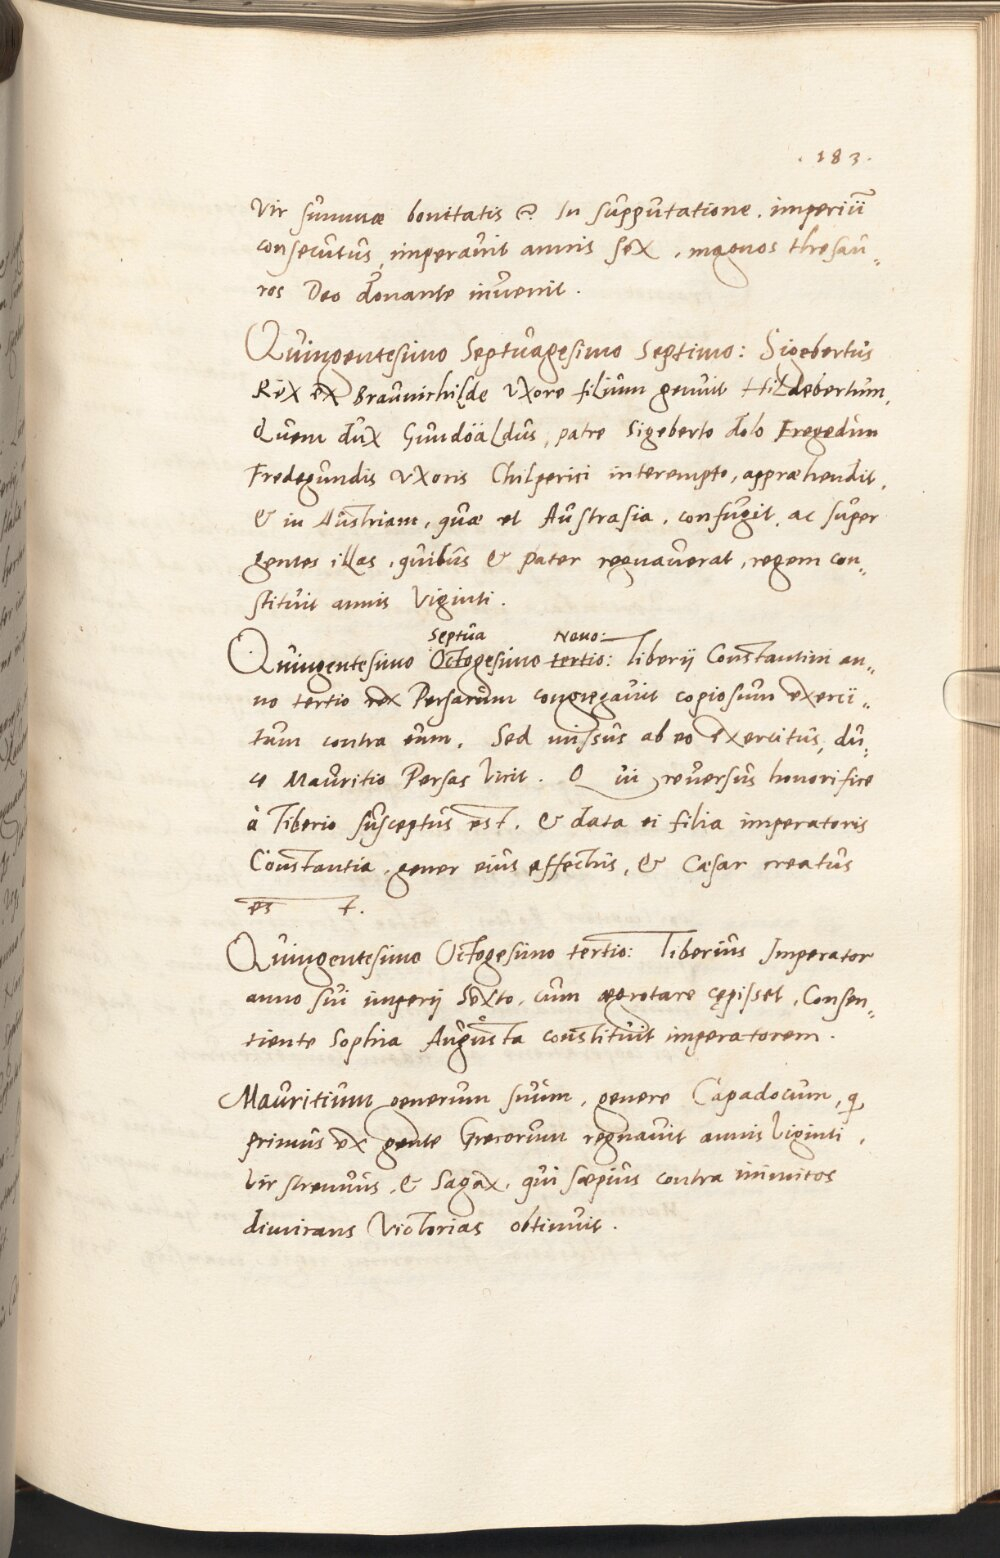 . 183 .
Vir summæ bonitatis & In supputatione . imperiū
consecutus, imperavit annis sex , magnos thesau„
ros Deo donante invenit .
Quingentesimo Septuagesimo Septimo: Sigebertus
Rex ex Braunichilde Uxore filium genuit Hildebertum,
Quem dux Gundöaldus, patre Sigeberto dolo Eregedum
Fredegundis uxoris Chilperici interempto, appræhendit,
& in Austriam, quæ et Austrasia, confugit, ac super
gentes illas, quibus & pater regnaverat, regem con„
stituit annis Viginti .
Septua Nono:
Quingentesimo Octogesimo tertio: Tiberij Constantini an„
no tertio rex Persarum congregavit copiosum exerci„
tum contra eum. Sed missus ab eo exercitus, du„
ce Mauritio Persas Vicit . Qui reversus honorifice
à Tiberio susceptus est, & data ei filia imperatoris
Constantia, gener eius effectus, & Cæsar creatus
est.
Quingentesimo Octogesimo tertio: Tiberius Imperator
anno sui imperij Sexto, cum ægrotare cępisset, Consen„
tiente Sophia Augusta constituit imperatorem .
Mauritium generum suum, genere Capadocum, q
primus ex gente Grecorum regnavit annis Viginti,
Vir strenuus, & Sagax, qui sæpius contra inimicos
dimicans Victorias obtinuit .